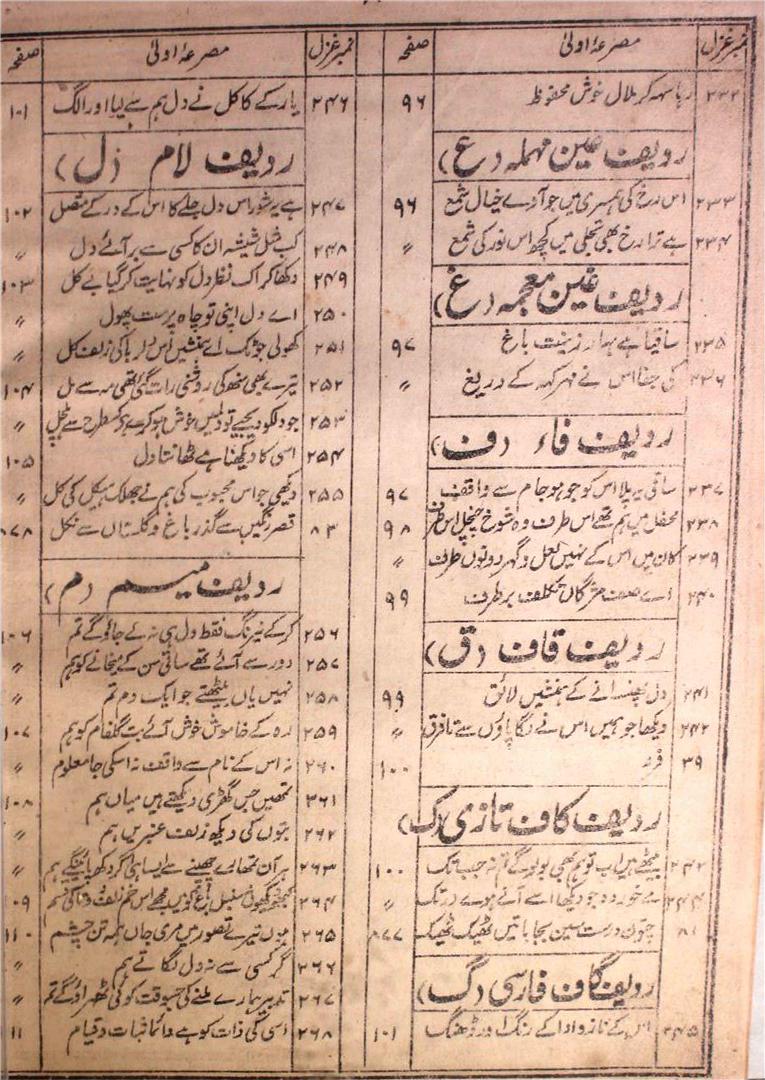 نمبر غزل مصرعۂ اولیٰ صفحہ
۲۳۲ رہا سہہ کر ملال خوش محفوظ ۹۶
ردیف عین مہملہ (ع)
۲۳۳ اس رخ کی ہمسری میں جو آوے خیال شمع ۹۶
۲۳۴ ہے ترا رخ بھی تجلی میں کچھ اس نور کی شمع 〃
ردیف غین معجمہ (غ)
۲۳۵ ساقیا ہے بہار زینت باغ ۹۷
۲۳۶ کی جفا اس نے مہر کہہ کے دریغ 〃
ردیف فاء (ف)
۲۳۷ ساقی یہ پلا اس کو جو ہو جام سے واقف ۹۷
۲۳۸ محفل میں ہم تھے اس طرف وہ شوخ چنچل اس طرف ۹۸
۲۳۹ کان میں اس کے نہیں لعل و گہر دونوں طرف 〃
۲۴۰ اے صف مژگاں تکلف بر طرف ۹۹
ردیف قاف (ق)
۲۴۱ دل پھنسانے کے ہمنشیں لائق ۹۹
۲۴۲ دیکھا جو ہیں اس نے لگا پاؤں سے تا فرق 〃
۳۹ فرد ۱۰۰
ردیف کاف تازی (ک)
۲۴۳ بیٹھے ہیں اب تو ہم بھی بولو گے تم نہ جب تک ۱۰۰
۲۴۴ مے خور دہ جو دیکھا اسے آتے ہوے در تک 〃
۸۱ چتون درست سین بجا باتیں ٹھیک ٹھیک ۸۷۷
ردیف گاف فارسی (گ)
۲۴۵ اس کے ناز و ادا کے رنگ اور ڈھنگ ۱۰۱
نمبر غزل مصرعۂ اولیٰ صفحہ
۲۴۶ یار کے کاکل نے دل ہم سے لیا اور الگ ۱۰۱
ردیف لام (ل)
۲۴۷ ہے یہ شور اس دل جلے کا اس کے در کے متصل ۱۰۲
۲۴۸ کب مثل شیشہ ان کا کسی سے بر آئے دل 〃
۲۴۹ دکھا کر اک نظر دل کو نہایت کر گیا بے کل ۱۰۳
۲۵۰ اے دل اپنی تو چاہ پر مت پھول 〃
۲۵۱ کھولی جو ٹک اے ہمنشیں اس دلربا کی زلف کل 〃
۲۵۲ تیرے بھی منھ کی روشنی رات گئی تھی مہ سے مل ۱۰۴
۲۵۳ جو دل کو دیجیے تو دل میں خوش ہو کرے ہے کس طرح سے ہلچل 〃
۲۵۴ اسی کا دیکھنا ہے ٹھانتا دل ۱۰۵
۲۵۵ دیکھی جو اس محبوب کی ہم نے جھلک ہیکل کی کل 〃
۸۳ قصر رنگیں سے گذر باغ و گلستاں سے نکل ۸۷۸
ردیف میم (م)
۲۵۶ کر کے نیرنگ فقط دل ہی نہ لے جاؤ گے تم ۱۰۶
۲۵۷ دور سے آئے تھے ساقی سن کے میخانے کو ہم 〃
۲۵۸ نہیں یاں بیٹھتے جو ایک دم تم 〃
۲۵۹ رہ کے خاموش خوش آئے بت گلفام کو ہم ۱۰۷
۲۶۰ نہ اس کے نام سے واقف نہ اسکی جا معلوم 〃
۳۶۱ تمھیں جس گھڑی دیکھتے ہیں میاں ہم ۱۰۸
۲۶۲ بتوں کی دیکھ زلف عنبریں ہم 〃
۲۶۳ ہر آن تمھارے چھپنے سے ایسا ہی اگر دکھ پائینگے ہم 〃
۲۶۴ زلف ۱۰۹
۲۶۵ ہوں تیرے تصور میں مری جاں ہمہ تن چشم ۱۱۰
۲۶۶ گر کسی سے نہ دل لگاتے ہم 〃
۲۶۷ تدبیر ہمارے ملنے کی جسوقت کوئی ٹھہراؤگے تم 〃
۲۶۸ اسی کی ذات کو ہے دائما ثبات و قیام ۱۱